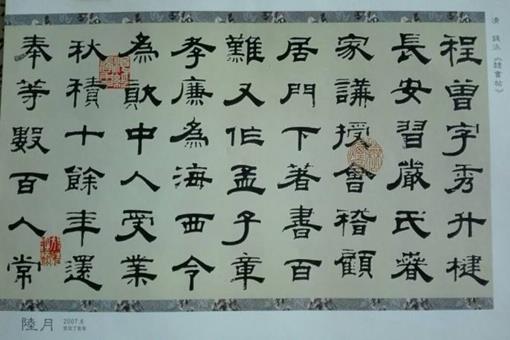 清 錢泳《隸書帖》
程曾字秀升楗
長安習嚴氏萅
家講授會稽顧
居門下著書百
難又作孟子章
孝廉為海西令
為中人受業
秋積十餘年還
奉等數百人常
陸月
2007.6